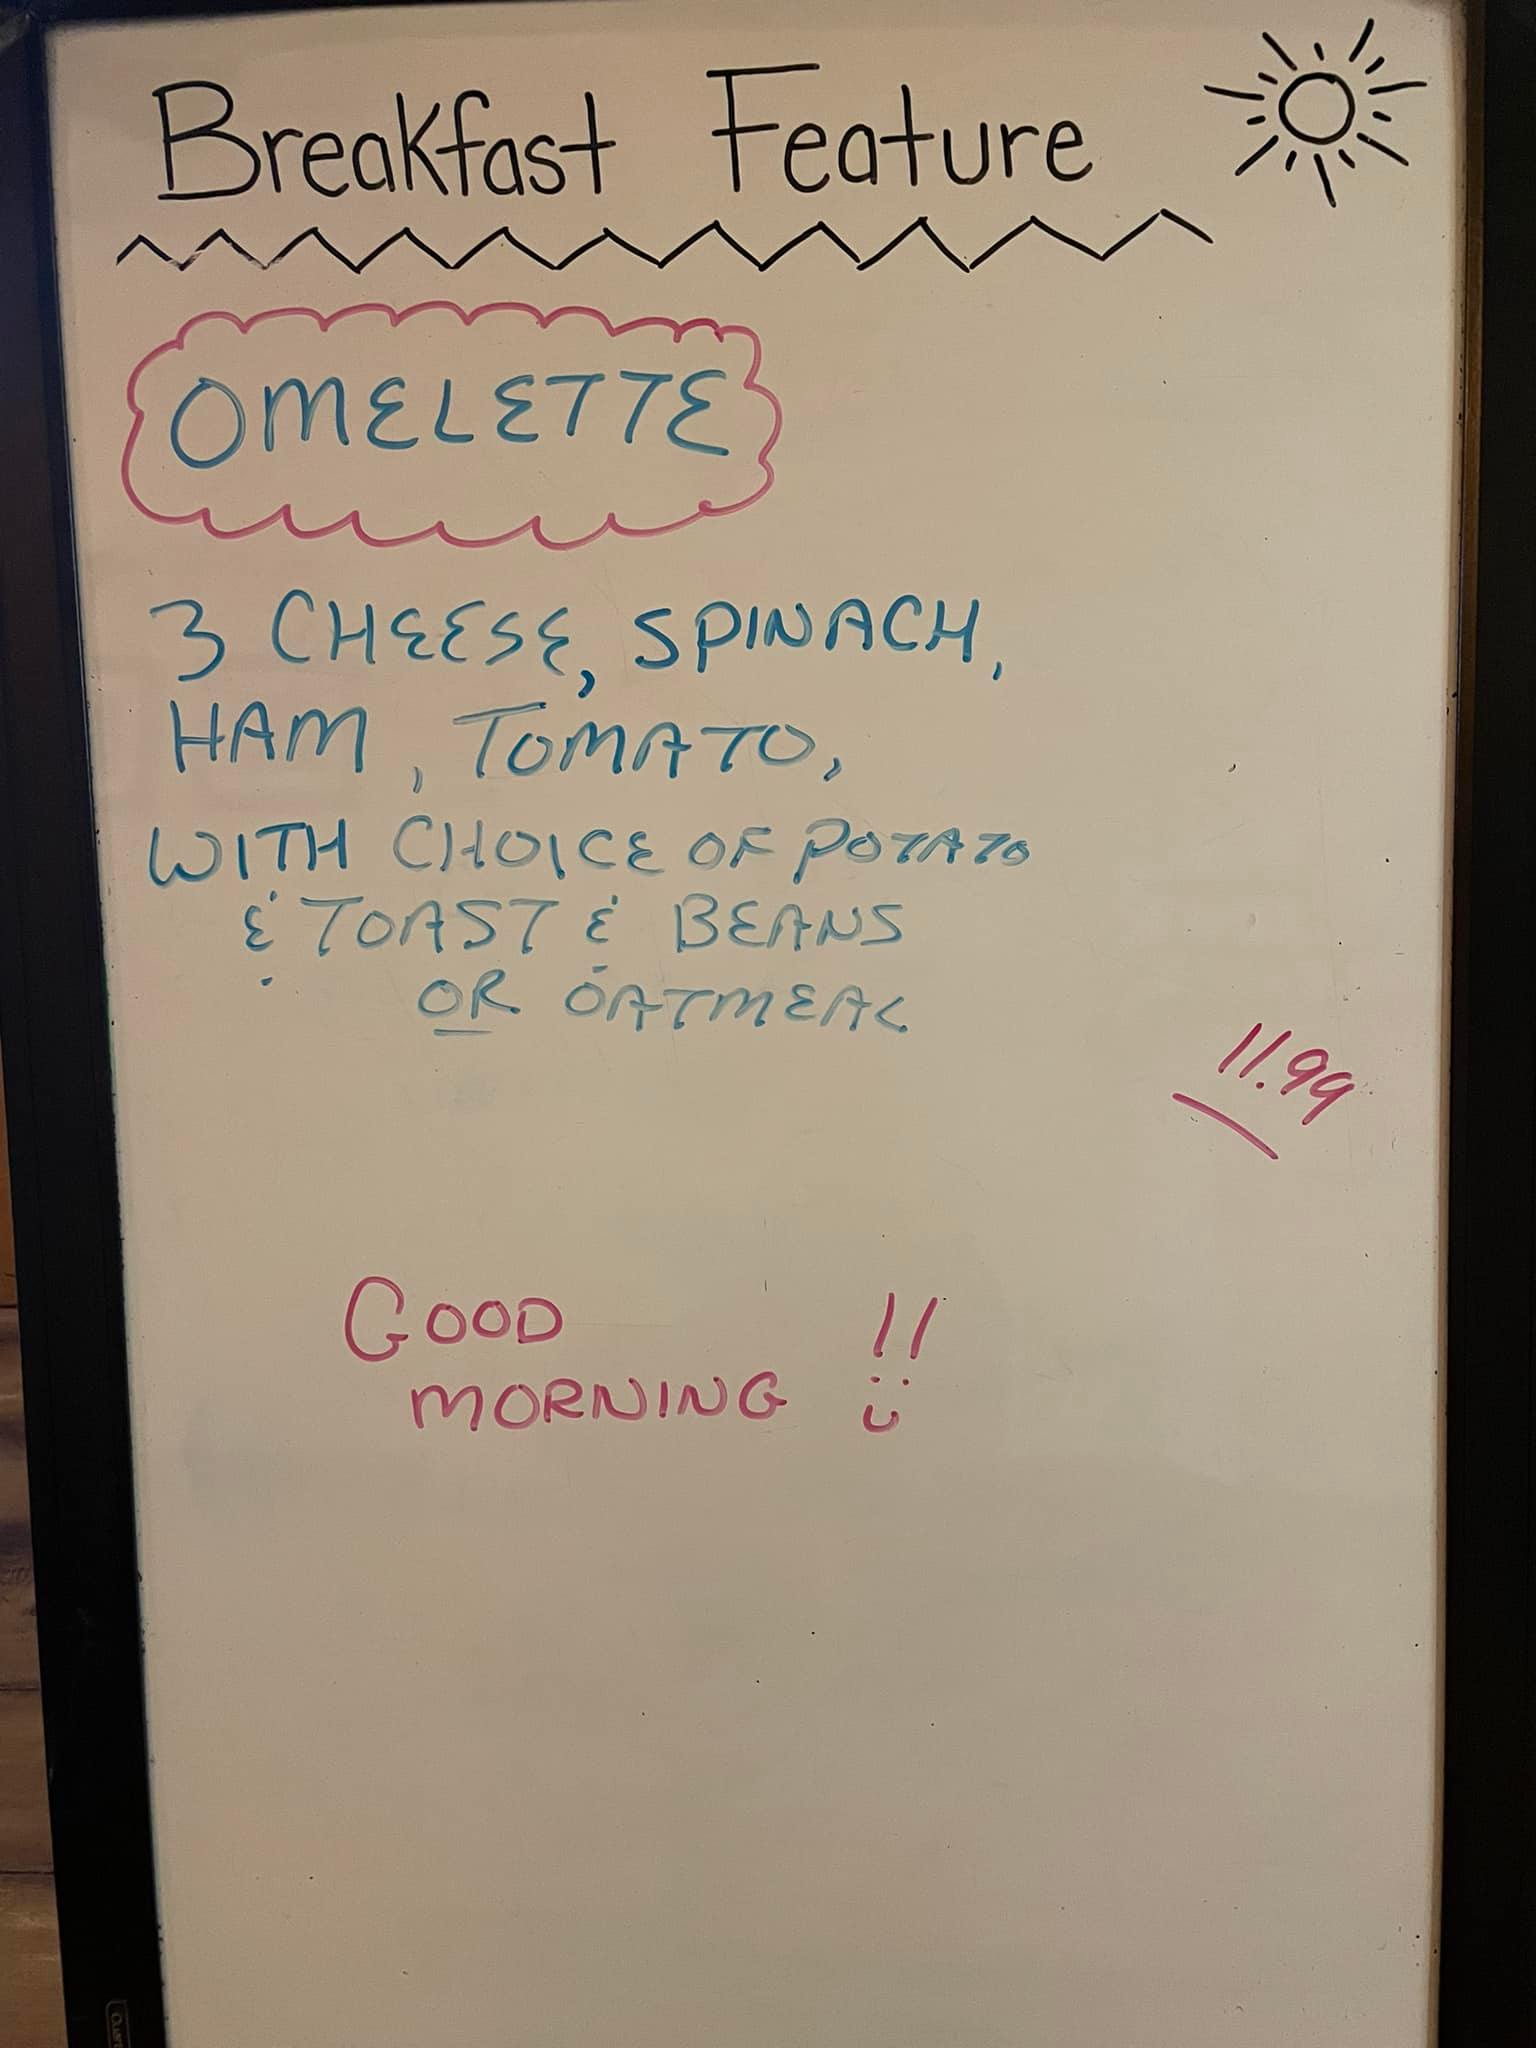 Breakfast Feature
OMELETTE
3 CHEESE, SPINACH,
HAM, TOMATO,
WITH CHOICE OF POTATO
& TOAST & BEANS
OR OATMEAL
11.99
GOOD !!
MORNING